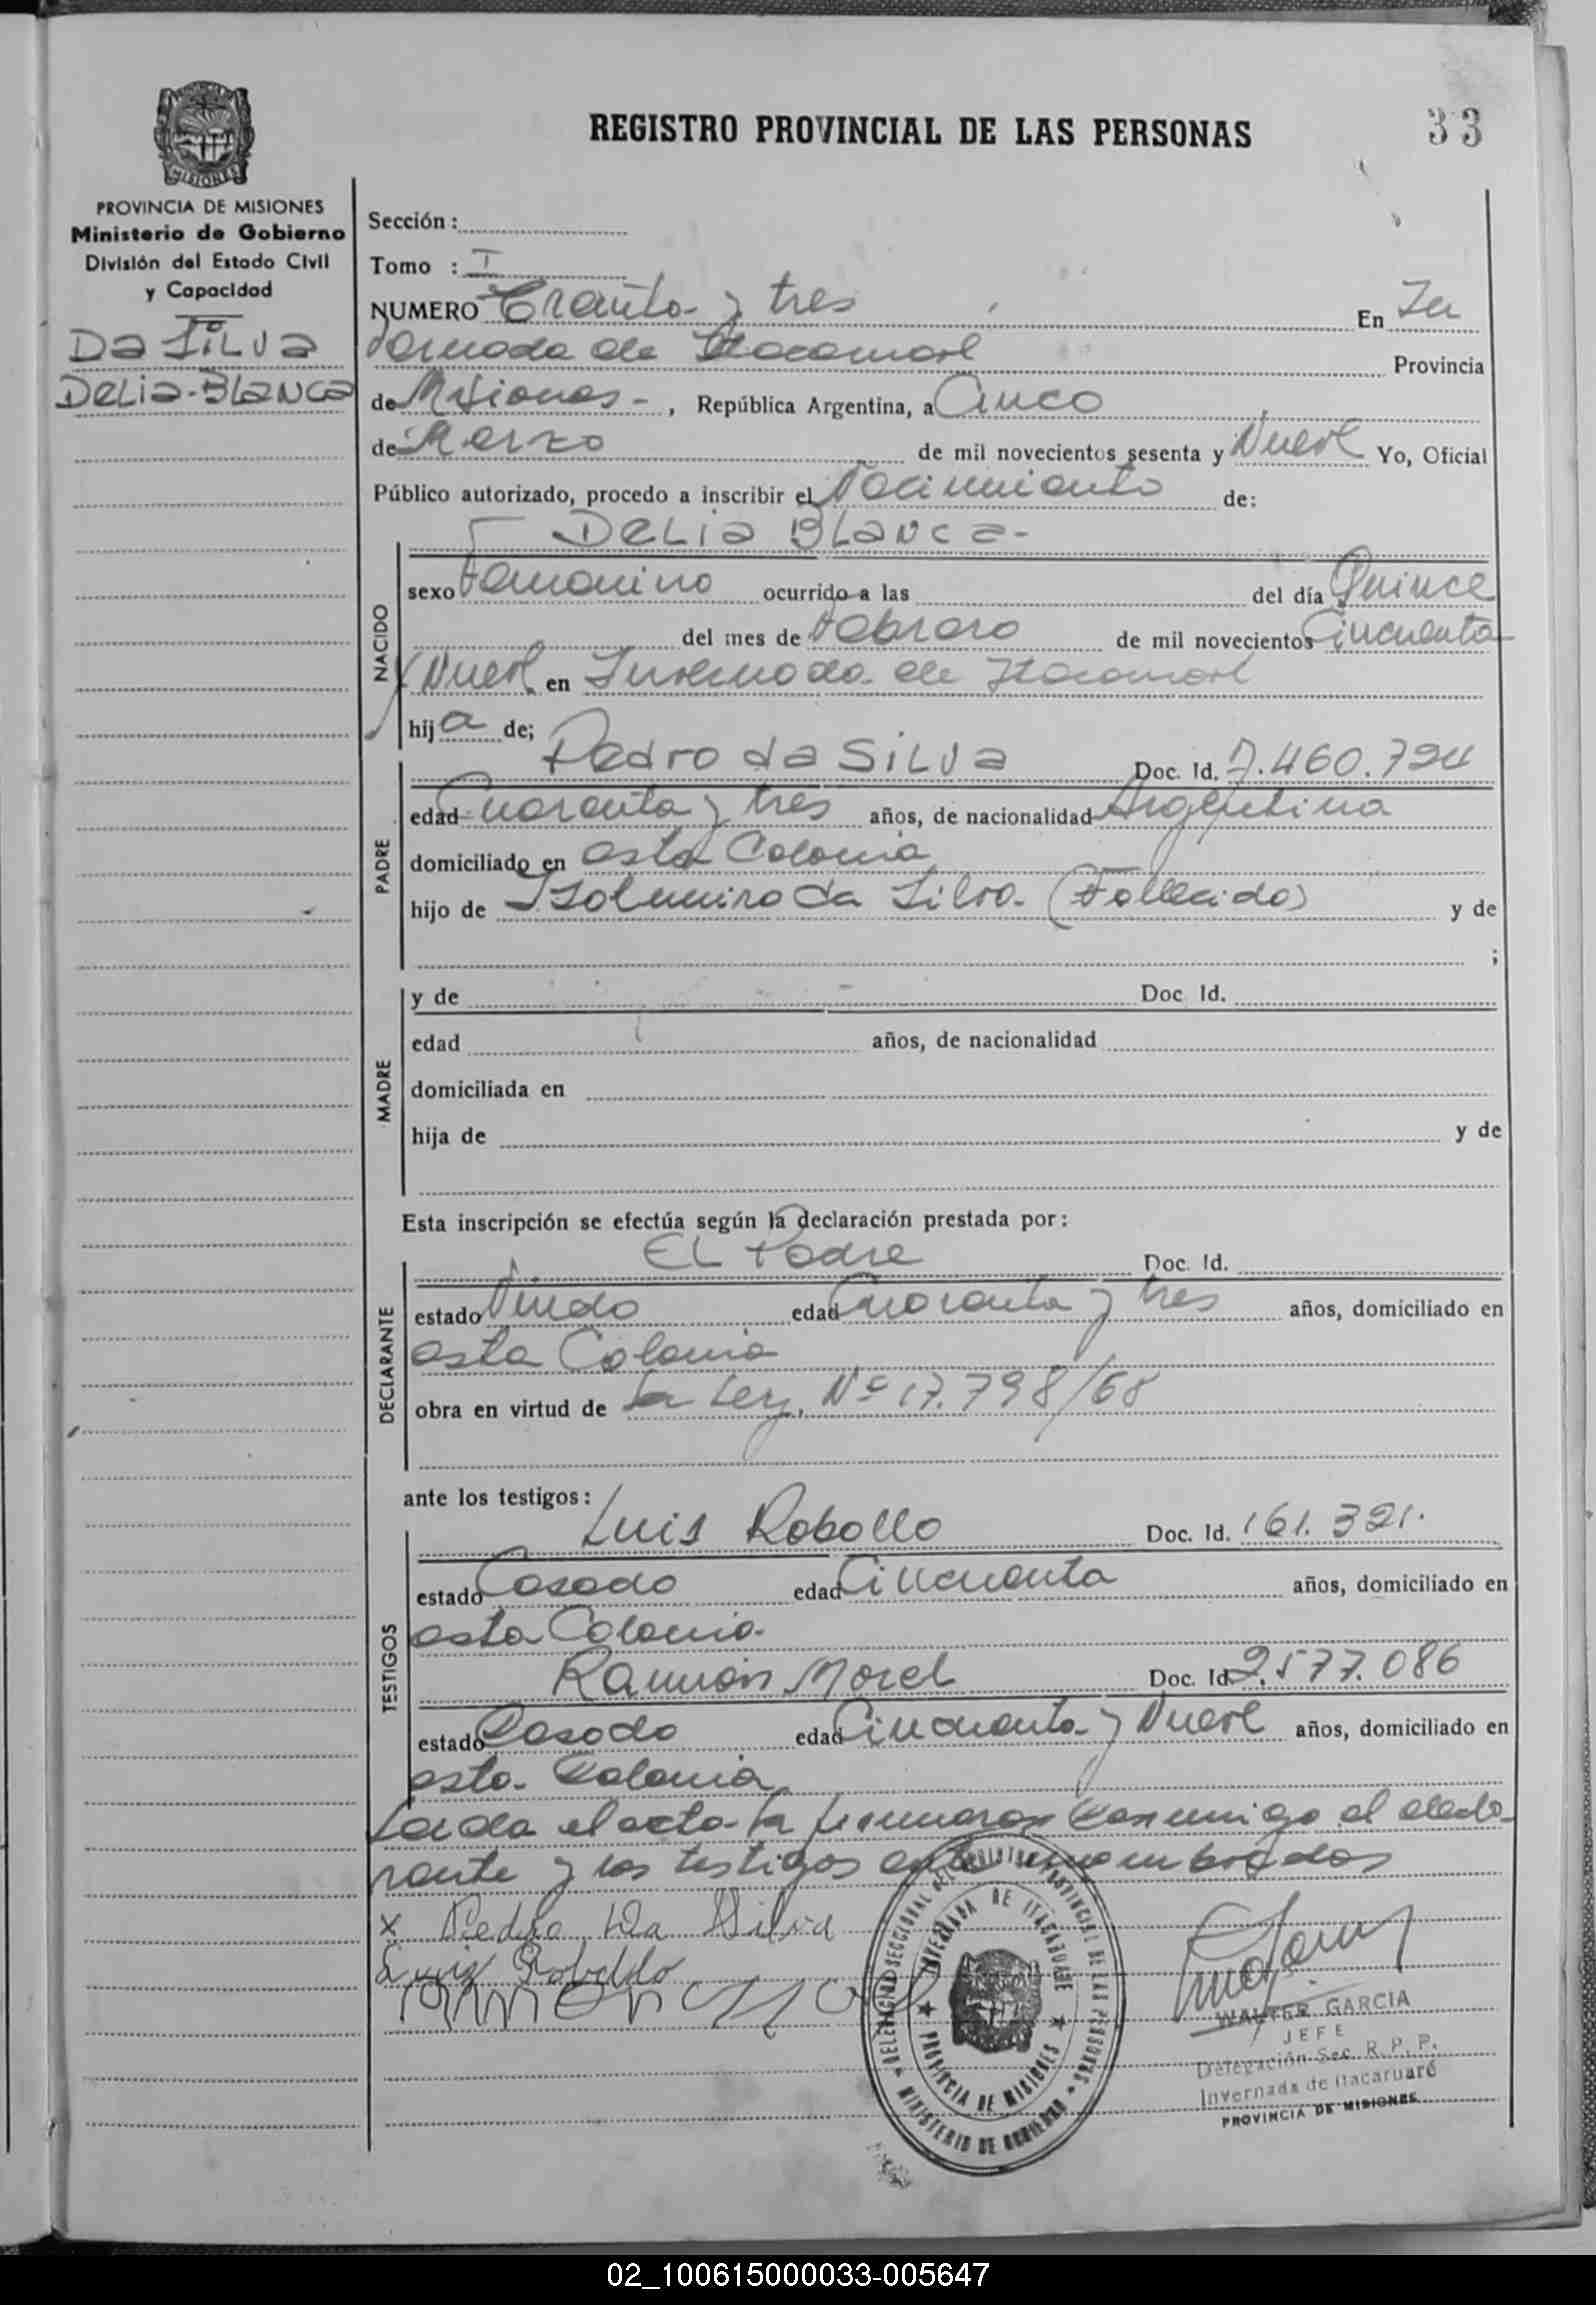 REGISTRO PROVINCIAL DE LAS PERSONAS
33
MISIONES
PROVINCIA DE MISIONES
Ministerio de Gobierno
División del Estado Civil
y Capacidad
Da SiLVa
DeLia-BLaNca
Sección:
Tomo : I
NUMERO Treinta y tres En In
vernada de Itacaruaré Provincia
de Misiones - , República Argentina, a Cinco
de Marzo de mil novecientos sesenta y Nueve Yo, Oficial
Público autorizado, procedo a inscribir el Nacimiento de:
DeLia BLaNca-
NACIDO
sexo Femenino ocurrido a las del día Quince
del mes de Febrero de mil novecientos Cincuenta
y Nueve en Invernada de Itacaruaré
hija de;
PADRE
Pedro da SiLVa Doc. Id. 7.460.724
edad Cuarenta y tres años, de nacionalidad Argentina
domiciliado en esta Colonia
hijo de da Silva. (Fallecido) y de
;
MADRE
y de Doc Id.
edad años, de nacionalidad
domiciliada en
hija de y de
Esta inscripción se efectúa según la declaración prestada por:
DECLARANTE
EL Padre Doc. Id.
estado Viudo edad Cuarenta y tres años, domiciliado en
esta Colonia
obra en virtud de la Ley. Nº 17.798/68
ante los testigos:
TESTIGOS
Luis Robollo Doc. Id. 161.321.
estado Casado edad Cincuenta años, domiciliado en
esta Colonia.
Ramón Morel Doc. Id 2.577.086
estado Casado edad Cincuenta y Nueve años, domiciliado en
esta Colonia
Leida el acta la firmaron conmigo el decla-
rante y los testigos antes nombrados
x Pedro Da Silva
Luis Robollo
Ramon Morel
DELEGACION SECCIONAL DEL REGISTRO PROVINCIAL DE LAS PERSONAS
INVERNADA DE ITACARUARE
PROVINCIA DE MISIONES
MINISTERIO DE GOBIERNO
WALTER GARCIA
JEFE
Delegación Sec. R. P. P.
Invernada de Itacaruaré
PROVINCIA DE MISIONES
02_100615000033-005647